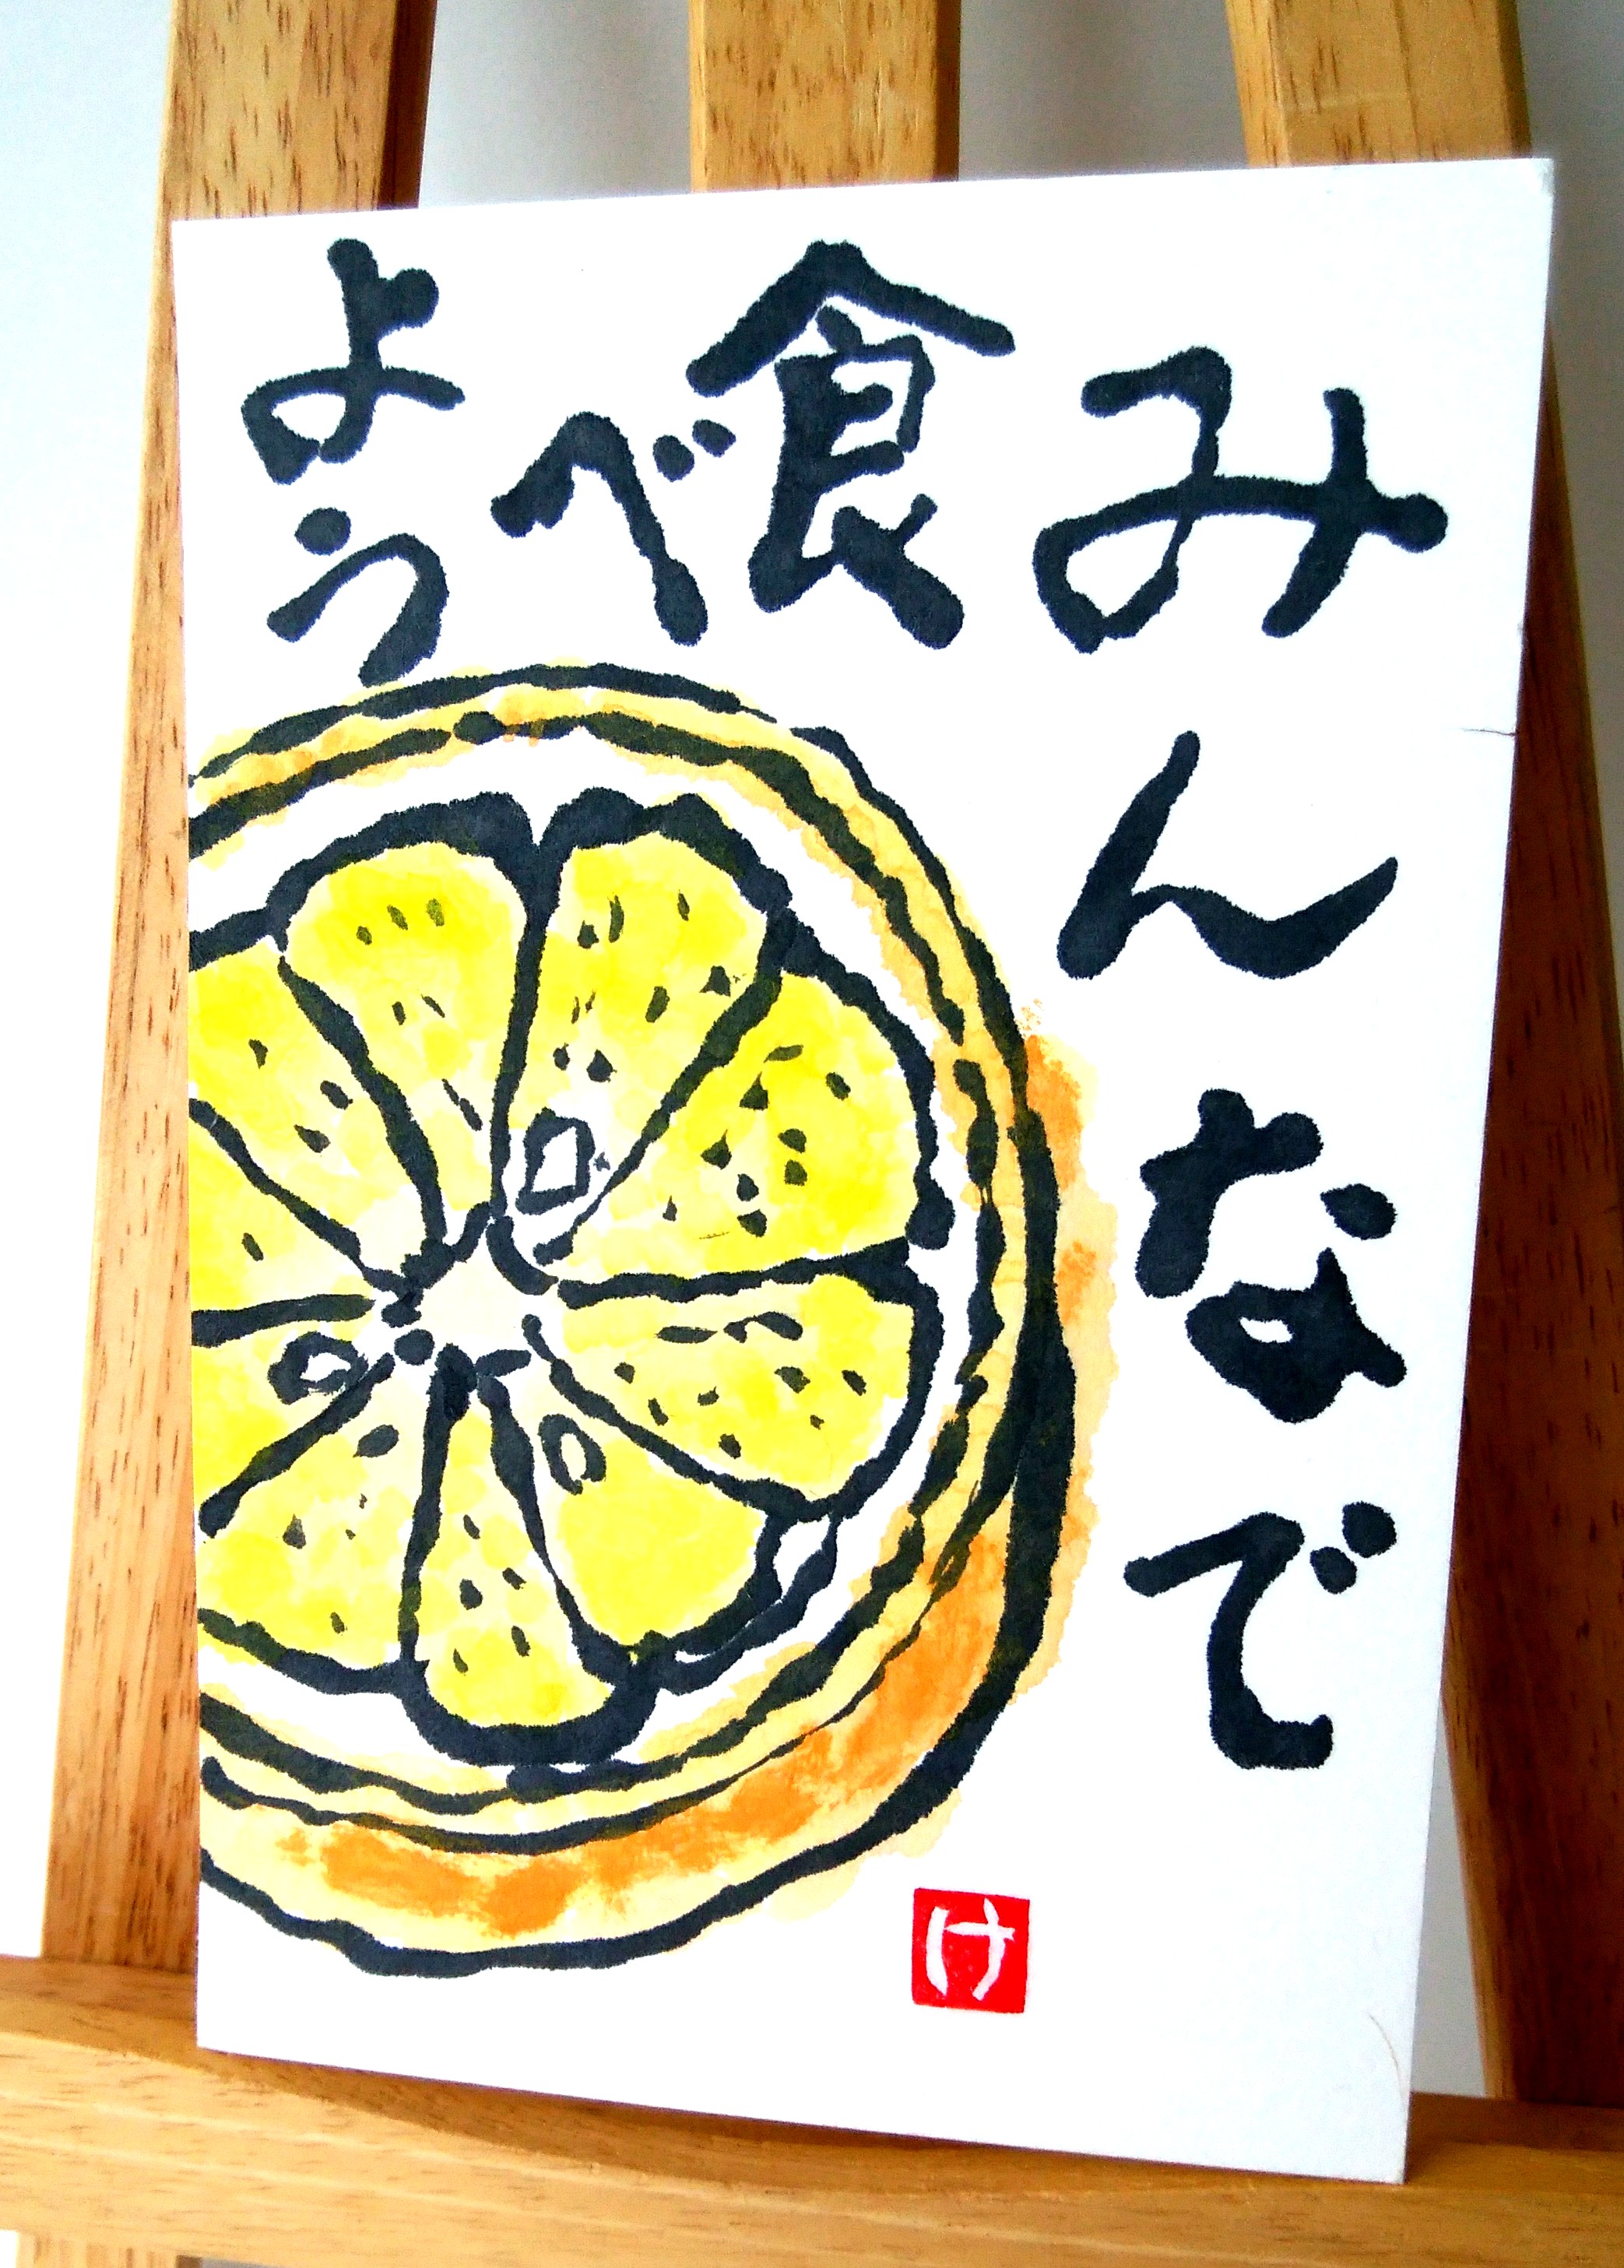 みんなで
食べ
よう
け